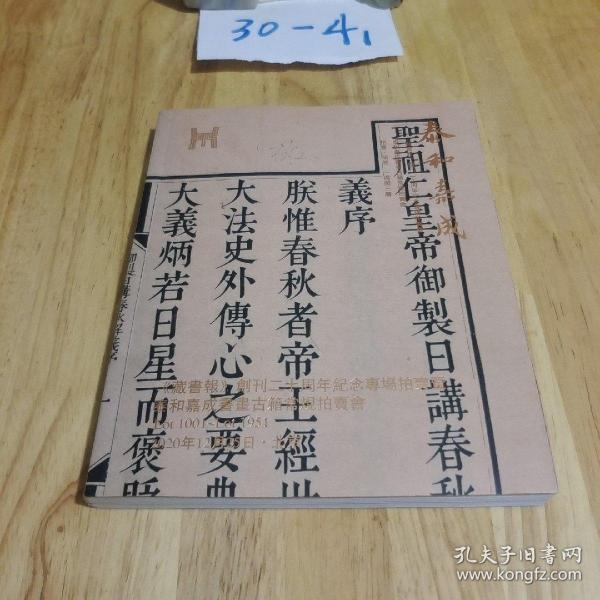 30-41
泰和嘉成
聖祖仁皇帝御製日講春秋
義序
朕惟春秋者帝王經世
大法史外傳心之要典
大義炳若日星而褒貶
《藏書報》創刊二十周年紀念專場拍賣會
泰和嘉成書畫古籍常規拍賣會
Lot 1001-Lot 1954
2020年12月05日·北京
孔夫子旧书网
www.kongfz.com